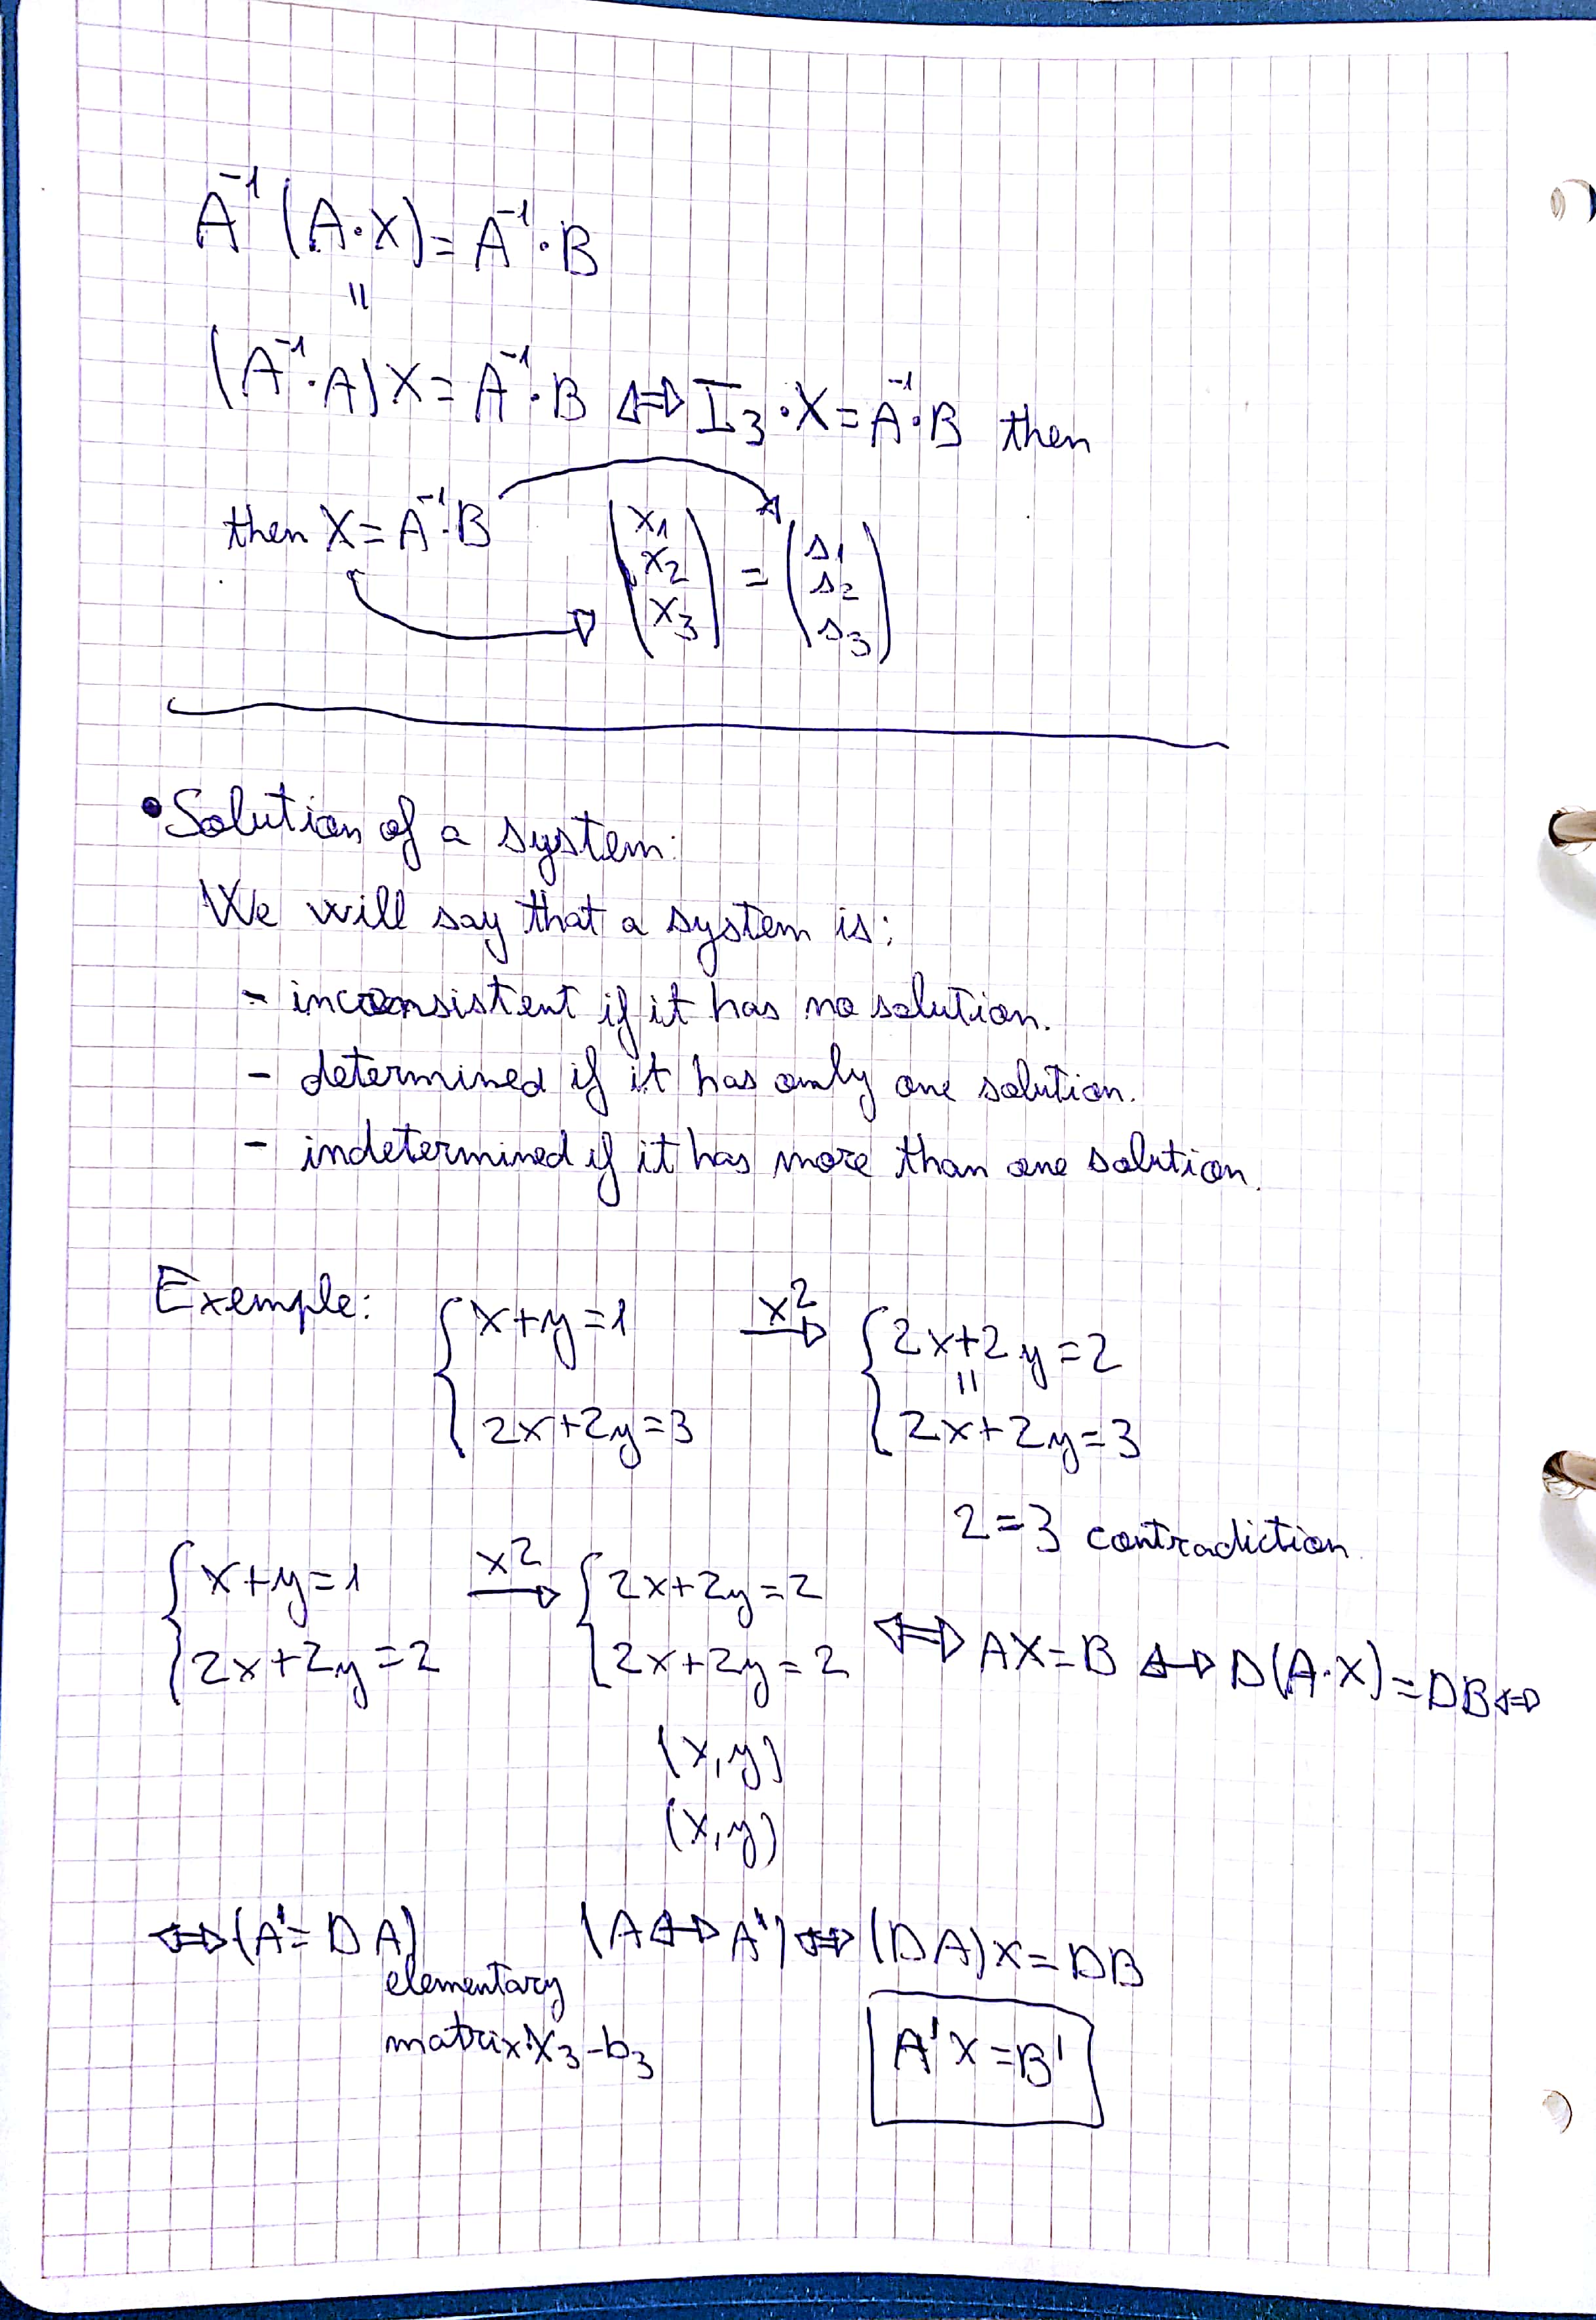 A⁻¹(A·X)=A⁻¹·B
=
(A⁻¹·A)X=A⁻¹·B ⇔ I₃·X=A⁻¹·B then
then X=A⁻¹·B (x₁ x₂ x₃) = (s₁ s₂ s₃)
• Solution of a system:
We will say that a system is:
- inconsistent if it has no solution.
- determined if it has only one solution.
- indetermined if it has more than one solution.
Exemple: { x+y=1 ×2→ { 2x+2y=2
=
2x+2y=3 2x+2y=3
2=3 contradiction
{ x+y=1 ×2→ { 2x+2y=2
2x+2y=2 2x+2y=2 ⇔ AX=B ↔ D(A·X)=DB ⇔
(x,y)
(x,y)
⇔ (A'=DA) (A ↔ A') ⇔ (DA)X=DB
elementary
matrix X₃-b₃ A'X=B'